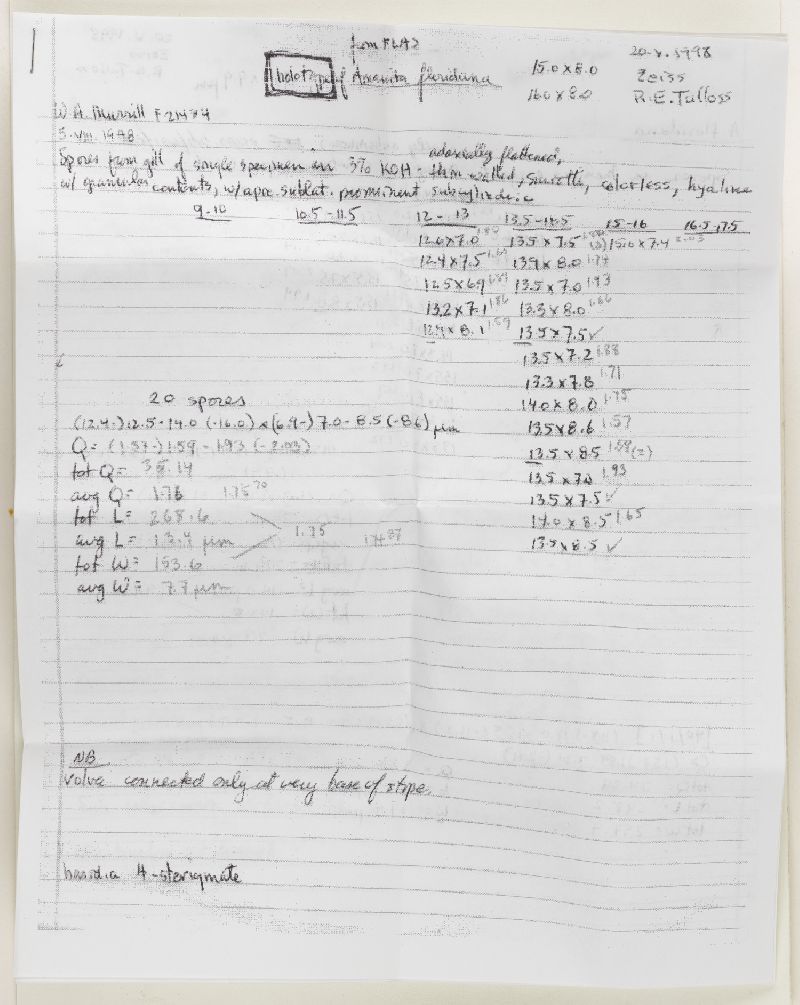 from FLAS
20-X-1998
holotype of Amanita floridana
15.0 x 8.0
Zeiss
16.0 x 8.0
R.E. Tulloss
W. A. Murrill F 21474
Spores from gill of single specimen in 3% KOH - thin walled, smooth, colorless, hyaline
adaxially flattened,
w/ granular contents, w/ apic. sublat. prominent subcylindric
9-10 10.5-11.5 12-13 13.5-14.5 15-16 16.5-17.5
12.6 x 7.0 1.80 13.5 x 7.5 15.0 x 7.4 2.03
12.4 x 7.5 13.9 x 8.0 1.74
12.5 x 6.9 13.5 x 7.0 1.93
13.2 x 7.1 1.86 13.3 x 8.0 1.66
x 8.1 1.59 13.5 x 7.5 ✓
13.5 x 7.2 1.88
13.3 x 7.8 1.71
14.0 x 8.0 1.75
13.5 x 8.6 1.57
13.5 x 8.5 1.59 (2)
13.5 x 7.0 1.93
13.5 x 7.5 ✓
14.0 x 8.5 1.65
13.5 x 8.5 ✓
20 spores
(12.4-) 12.5 - 14.0 (-16.0) x (6.9-) 7.0 - 8.5 (-8.6) µm
Q = (1.57-) 1.59 - 1.93 (-2.03)
tot Q = 35.14
avg Q = 1.76
tot L = 268.6
avg L = 13.4 µm 1.75
tot W = 153.6
avg W = 7.7 µm
NB
volva connected only at very base of stipe.
basidia 4-sterigmate